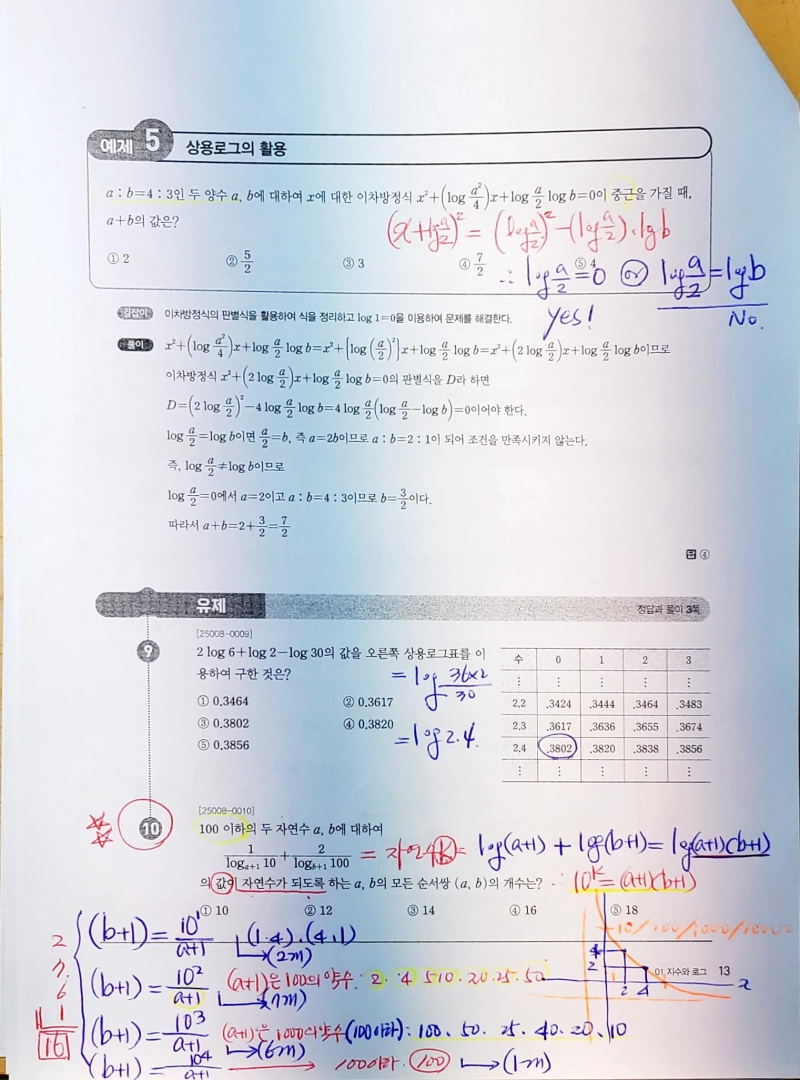 예제 5 상용로그의 활용
a : b=4 : 3인 두 양수 a, b에 대하여 x에 대한 이차방정식 x²+(log a²/4)x+log a/2 log b=0이 중근을 가질 때,
a+b의 값은?
(x+log a/2)² = (log a/2)² - (log a/2)·log b
① 2 ② 5/2 ③ 3 ④ 7/2 ⑤ 4
∴ log a/2 = 0 or log a/2 = log b
Yes! No.
길잡이 이차방정식의 판별식을 활용하여 식을 정리하고 log 1=0을 이용하여 문제를 해결한다.
풀이 x²+(log a²/4)x+log a/2 log b=x²+{log (a/2)²}x+log a/2 log b=x²+(2 log a/2)x+log a/2 log b이므로
이차방정식 x²+(2 log a/2)x+log a/2 log b=0의 판별식을 D라 하면
D=(2 log a/2)²-4 log a/2 log b=4 log a/2(log a/2-log b)=0이어야 한다.
log a/2=log b이면 a/2=b, 즉 a=2b이므로 a : b=2 : 1이 되어 조건을 만족시키지 않는다.
즉, log a/2≠log b이므로
log a/2=0에서 a=2이고 a : b=4 : 3이므로 b=3/2이다.
따라서 a+b=2+3/2=7/2
답 ④
유제 정답과 풀이 3쪽
[25008-0009]
9 2 log 6+log 2-log 30의 값을 오른쪽 상용로그표를 이
용하여 구한 것은?
= log 36×2/30
① 0.3464 ② 0.3617
③ 0.3802 ④ 0.3820
= log 2.4.
⑤ 0.3856
수 0 1 2 3
⋮ ⋮ ⋮ ⋮ ⋮
2.2 .3424 .3444 .3464 .3483
2.3 .3617 .3636 .3655 .3674
2.4 .3802 .3820 .3838 .3856
⋮ ⋮ ⋮ ⋮ ⋮
[25008-0010]
10 100 이하의 두 자연수 a, b에 대하여
1/log_{a+1} 10 + 2/log_{b+1} 100 = 자연수 k = log(a+1) + log(b+1) = log(a+1)(b+1)
의 값이 자연수가 되도록 하는 a, b의 모든 순서쌍 (a, b)의 개수는? ∴ 10^k = (a+1)(b+1)
① 10 ② 12 ③ 14 ④ 16 ⑤ 18
10/100/1000/10000
2 (b+1) = 10¹/a+1 → (1.4), (4,1)
(2개)
7 (b+1) = 10²/(a+1) (a+1)은 100의 약수. 2 4 5 10. 20. 25. 50
→ (7개)
6 (b+1) = 10³/a+1 (a+1)은 1000의 약수(100이하): 100、50、25、40、20、10
→ (6개)
1 (b+1) = 10⁴/a+1 → 100이하. 100 → (1개)
16
4
2
2 4 x
01. 지수와 로그 13